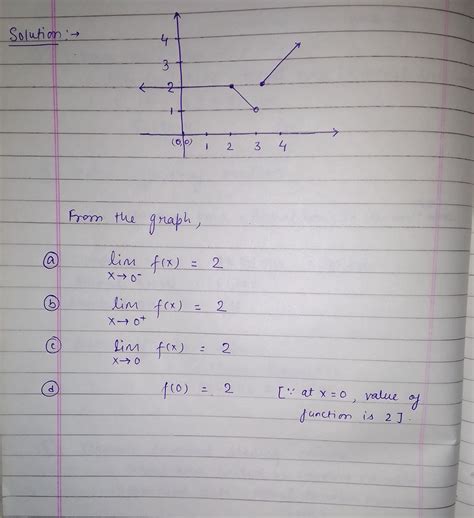 Solution:→
4
3
2
1
(0,0) 1 2 3 4
From the graph,
(a) lim f(x) = 2
x→0⁻
(b) lim f(x) = 2
x→0⁺
(c) lim f(x) = 2
x→0
(d) f(0) = 2 [∵ at x=0, value of
function is 2].